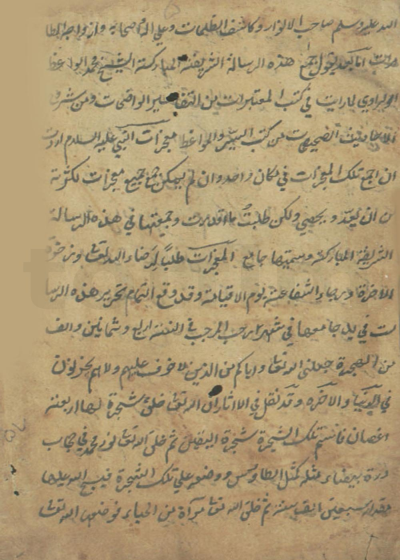 الله عليه وسلم صاحب الانوار وكاشف الظلمات وعلى آله واصحابه وازواجه الطا
هرات اما بعد يقول جامع هذه الرسالة الشريفة المباركة الشيخ محمد الواعظ
الرهاوي لما رأيت في كتب المعتبرات من التفاسير الواضحات ومن شرح
الاحاديث الصحيحات من كتب السير والمواعظ معجزات النبي عليه السلام اردت
ان اجمع تلك المعجزات في مكان واحد وان لم يمكن جمع جميع معجزات لكثرته
من ان يعد ويحصى ولكن طلبت ما قدرت وجمعتها في هذه الرسالة
الشريفة المباركة وسميتها جامع المعجزات طلبا لرضاء الله تعالى
الآخرة ورجاء الشفاعة يوم القيامة وقد وقع اتمام تحرير هذه الرسا
لت في يد جامعها في شهر رجب المرجب في السنة اربع وثمانين والف
من الهجرة جعلني الله تعالى واياكم من الذين لا خوف عليهم ولا هم يحزنون
في الدنيا والآخرة وقد نقل في الآثار ان الله تعالى خلق شجرة لها اربعة
اغصان فاسم تلك الشجرة شجرة اليقين ثم خلق الله تعالى نور محمد في حجاب
درة بيضاء مثله كمثل الطاوس ووضع على تلك الشجرة فسبح الله عليها
مقدار سبعين الف سنة ثم خلق الله تعالى مرآة من الحياء فوضع الله تعالى